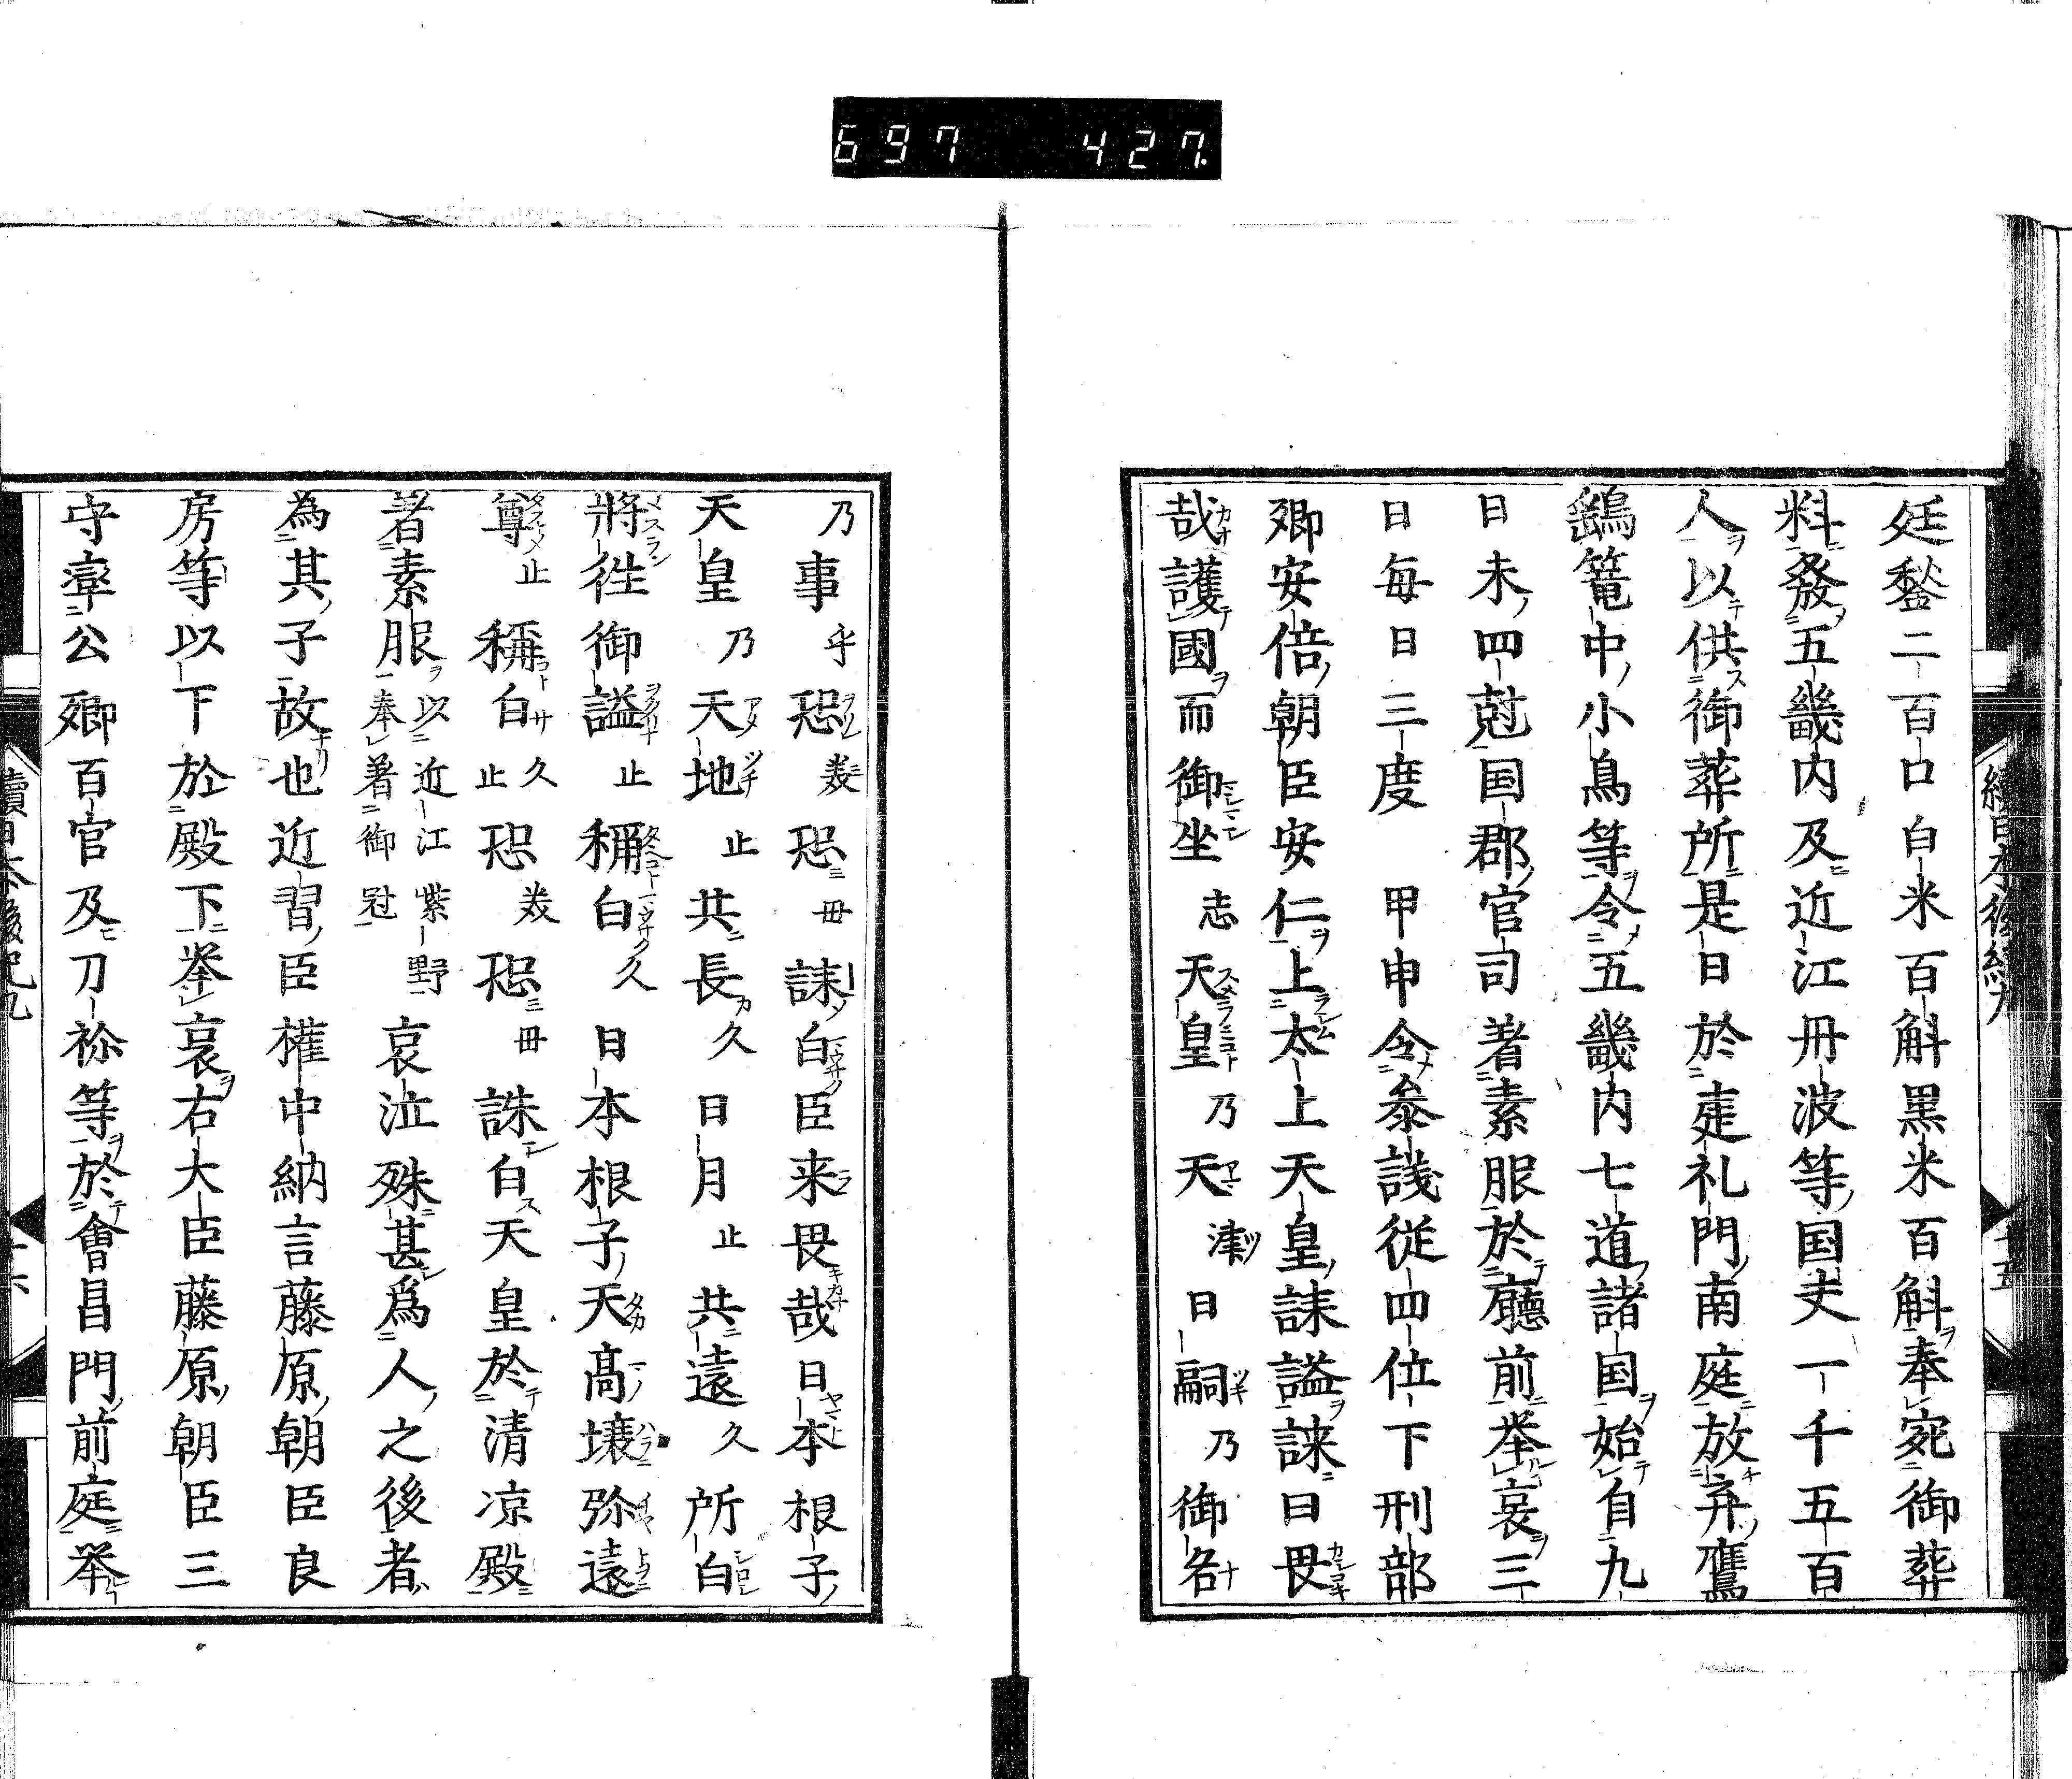 697 427.
廷鍪二百口白米百斛黒米百斛奉宛御葬
料發五畿内及近江丹波等国夫一千五百
人以供御葬所是日於建礼門南庭放弃鷹
鷂篭中小鳥等令五畿内七道諸国始自九
日未四尅国郡官司著素服於廳前挙哀三
日毎日三度 甲申令参議従四位下刑部
卿安倍朝臣安仁上太上天皇誄謚誄曰畏
哉護國而御坐志天皇乃天津日嗣乃御名
乃事乎恐美恐毋誄白臣来畏哉日本根子
天皇乃天地止共長久日月止共遠久所白
將徃御謚止稱白久日本根子天髙壤弥遠
尊止稱白久止恐美恐毋誄白天皇於清凉殿
著素服以近江紫野奉著御冠哀泣殊甚爲人之後者
為其子故也近習臣權中納言藤原朝臣良
房等以下於殿下挙哀右大臣藤原朝臣三
守率公卿百官及刀祢等於會昌門前庭挙